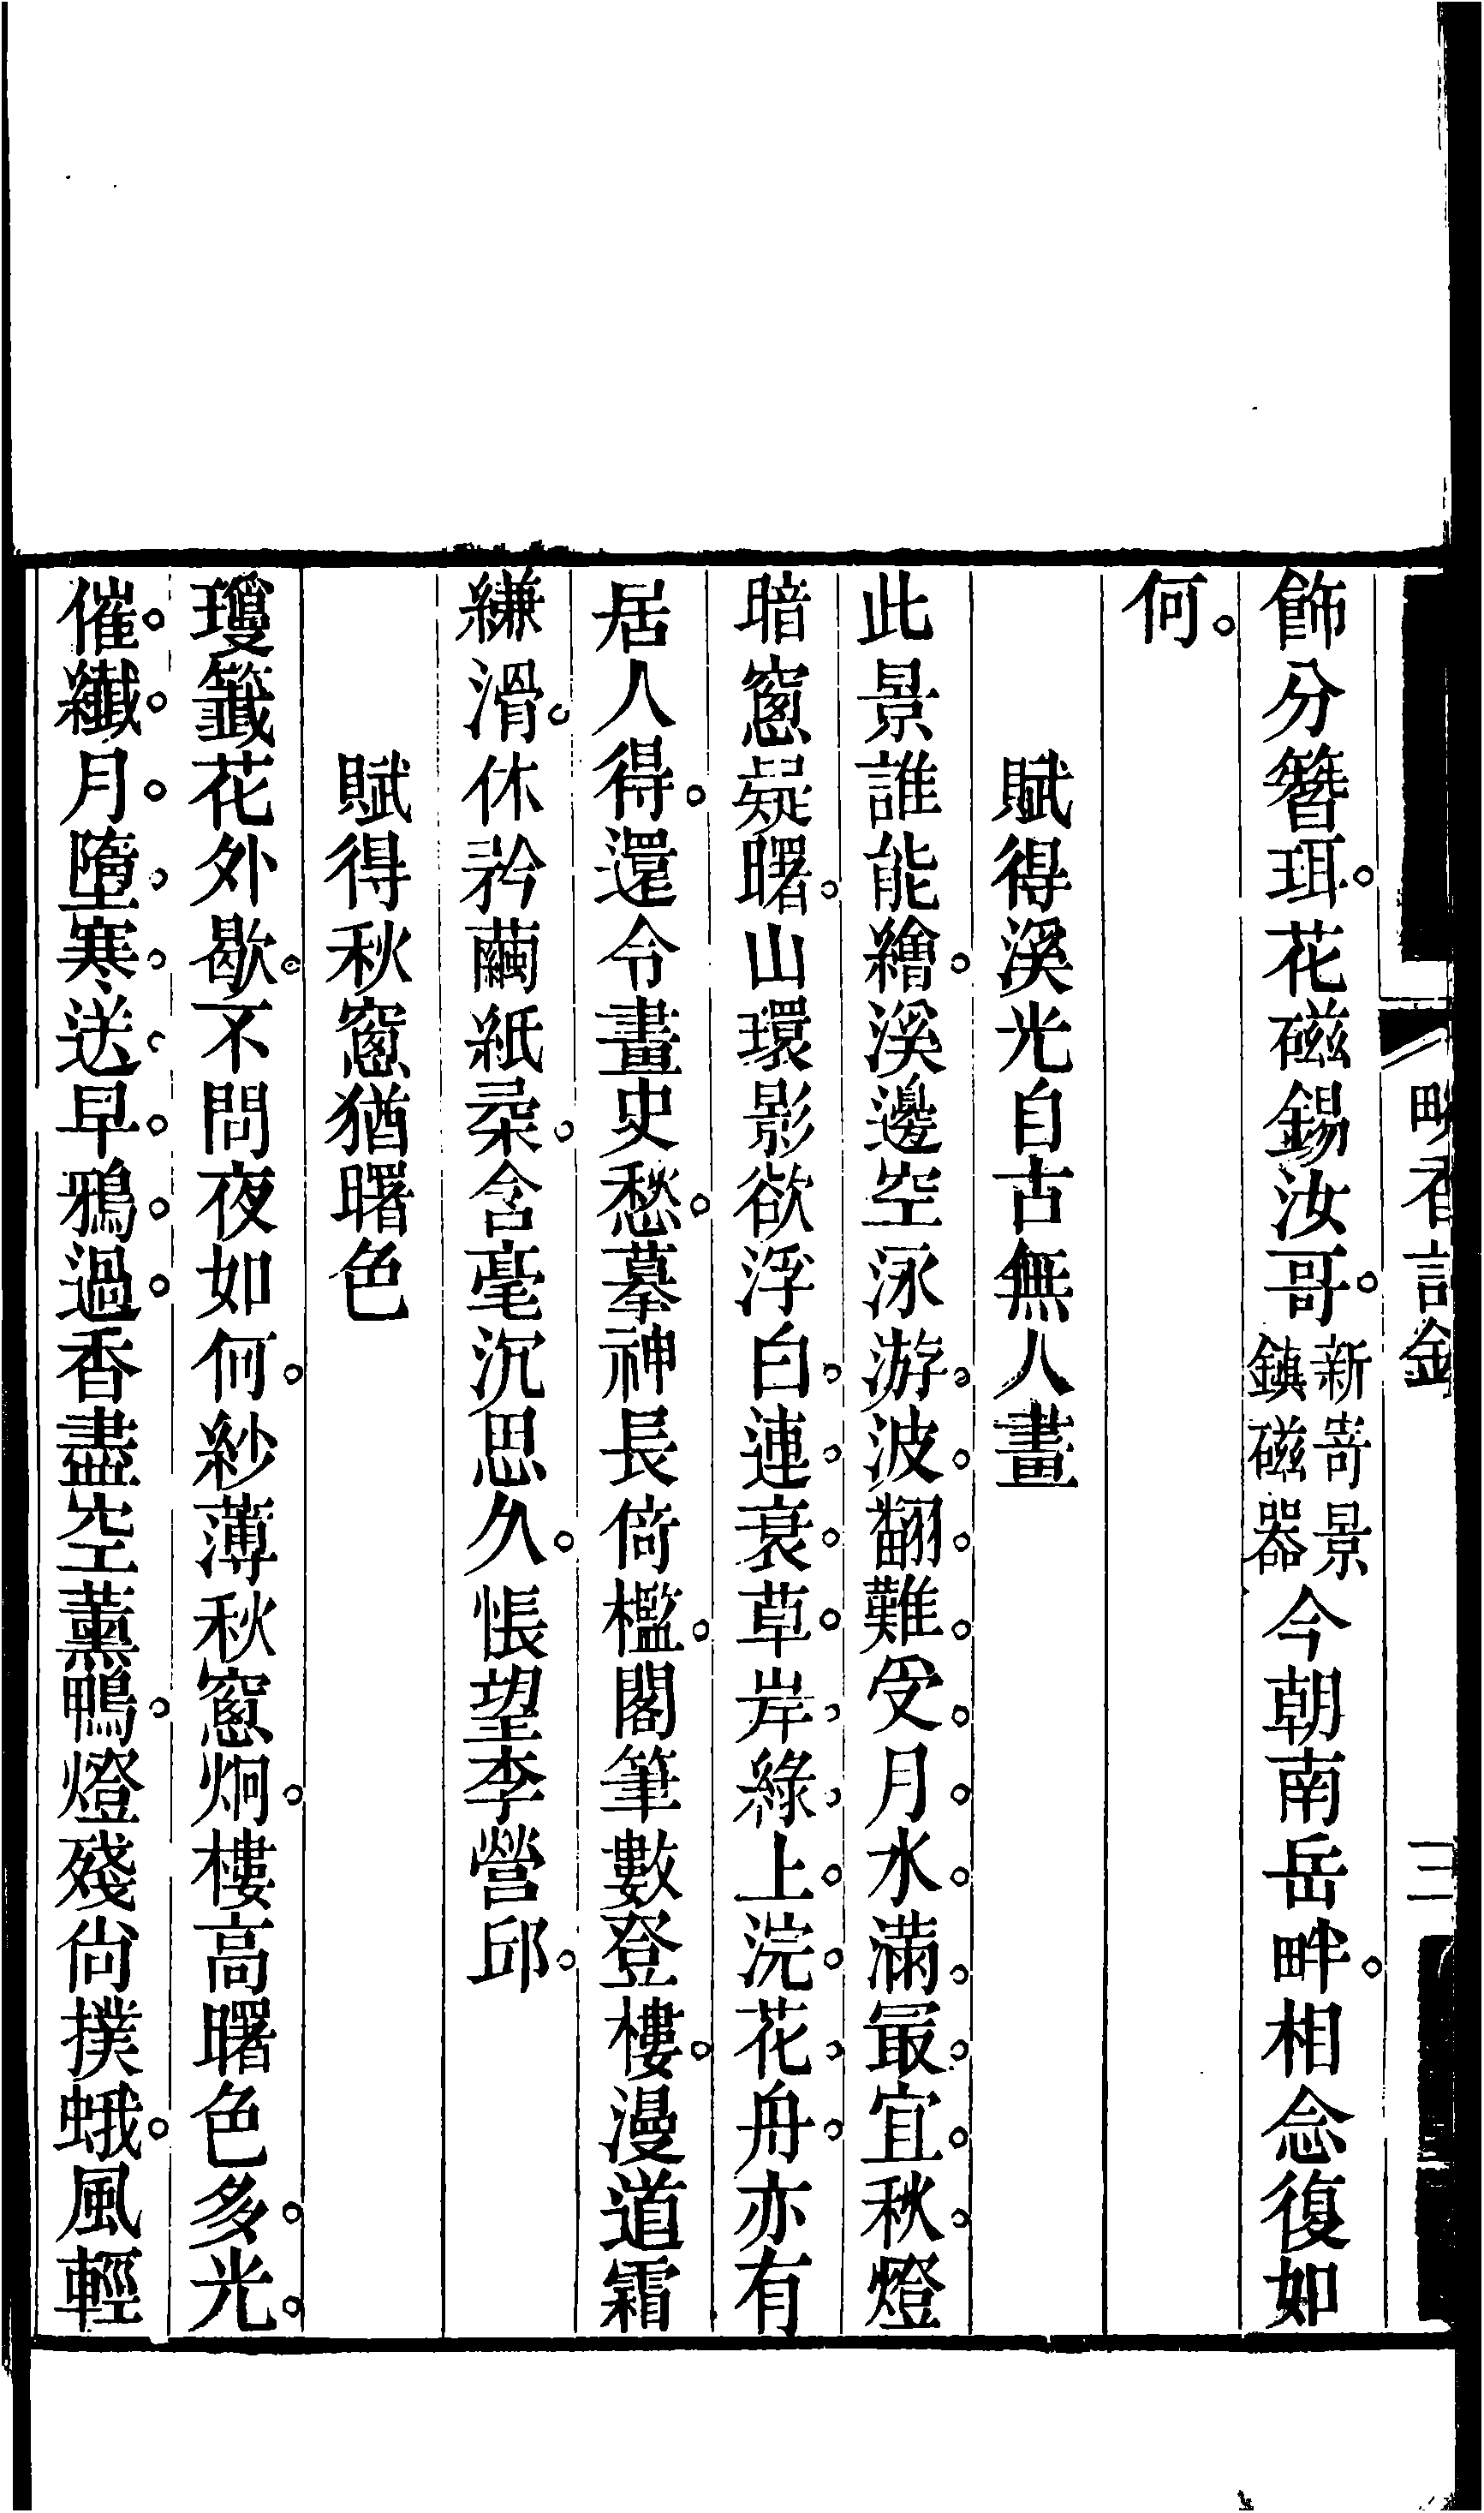 飾分簪珥。花磁錫汝哥。新嵜景鎮磁器今朝南岳畔。相念復如
何。
賦得溪光自古無人畫
此景誰能繪。溪邊空泳游。波翻難受月。水滿最宜秋。燈
暗窻疑曙。山環影欲浮。白連衰草岸。綠上浣花舟。亦有
居人得。還令畫史愁。摹神長倚檻。閣筆數登樓。漫道霜
縑滑。休矜繭紙柔。含毫沉思久。悵望李營邱。
賦得秋窻猶曙色
瓊籤花外歇。不問夜如何。紗薄秋窻炯。樓高曙色多。光
催纖月墮。寒送早鴉過。香盡空薰鴨。燈殘尚撲蛾。風輕
三